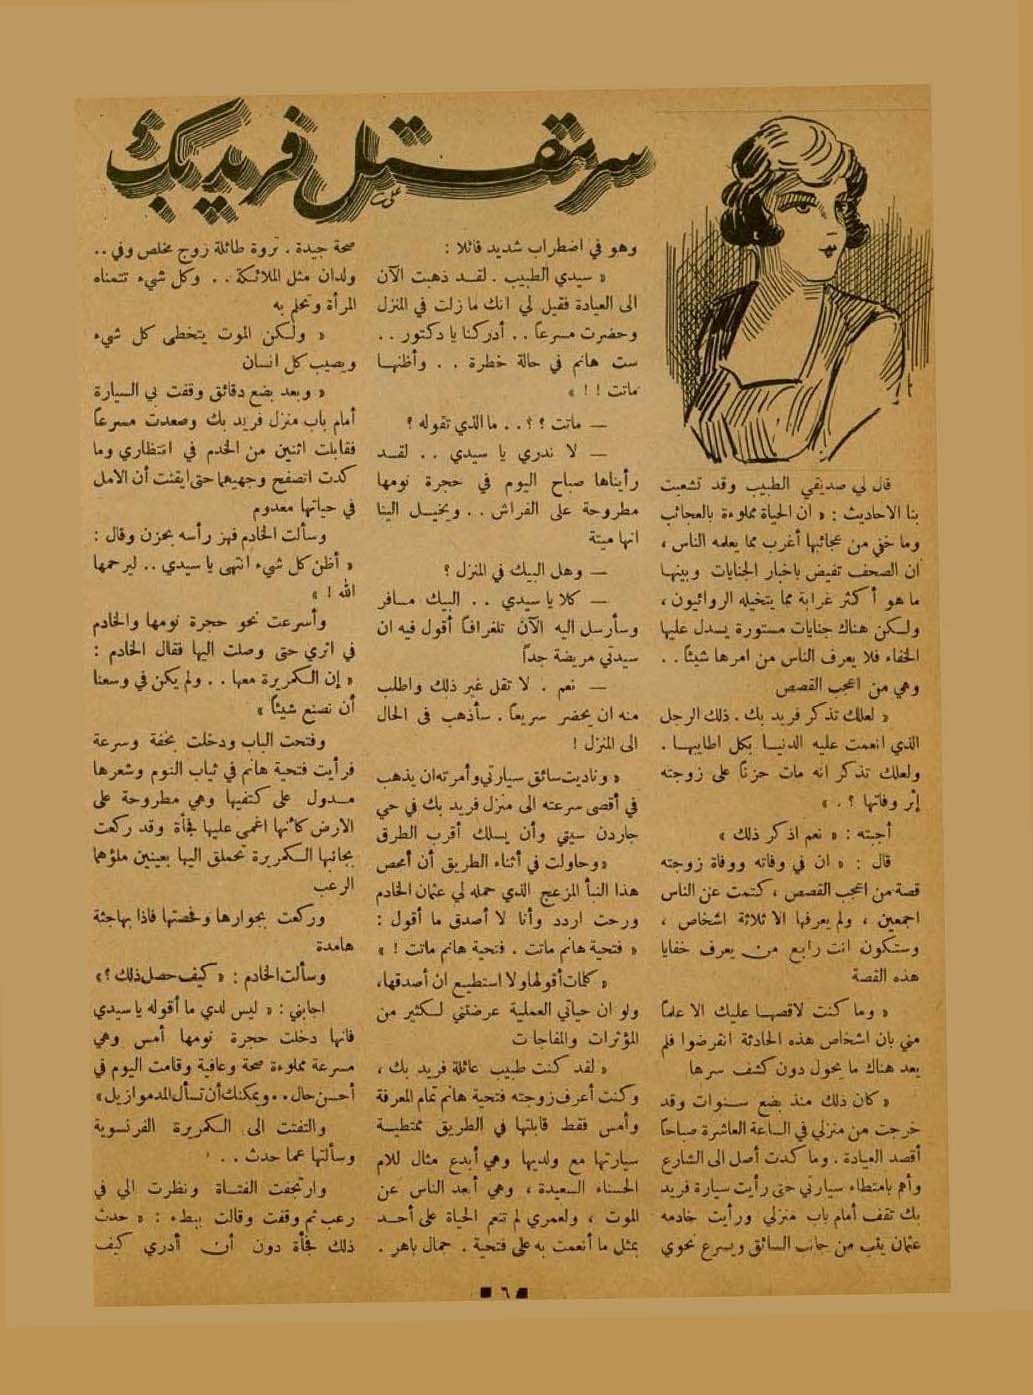 سر مقتل فريد بك
قال لي صديقي الطبيب وقد تشعبت
بنا الاحاديث : « ان الحياة مملوءة بالعجائب
وما خفي من عجائبها أغرب مما يعلمه الناس ،
ان الصحف تفيض باخبار الجنايات وبينها
ما هو أكثر غرابة مما يتخيله الروائيون ،
ولكن هناك جنايات مستورة يسدل عليها
الخفاء فلا يعرف الناس من امرها شيئاً . .
وهي من اعجب القصص
« لعلك تذكر فريد بك . ذلك الرجل
الذي انعمت عليه الدنيا بكل اطايبها .
ولعلك تذكر انه مات حزناً على زوجته
إثر وفاتها ؟ . »
أجبته : « نعم اذكر ذلك »
قال : « ان في وفاته ووفاة زوجته
قصة من اعجب القصص ، كتمت عن الناس
اجمعين ، ولم يعرفها الا ثلاثة اشخاص ،
وستكون انت رابع من يعرف خفايا
هذه القصة
« وما كنت لاقصها عليك الا علماً
مني بان اشخاص هذه الحادثة انقرضوا فلم
يعد هناك ما يحول دون كشف سرها
« كان ذلك منذ بضع سنوات وقد
خرجت من منزلي في الساعة العاشرة صباحاً
أقصد العيادة . وما كدت أصل الى الشارع
وأهم بامتطاء سيارتي حتى رأيت سيارة فريد
بك تقف أمام باب منزلي ورأيت خادمه
عثمان يثب من جانب السائق ويسرع نحوي
وهو في اضطراب شديد قائلا :
« سيدي الطبيب . لقد ذهبت الآن
الى العيادة فقيل لي انك ما زلت في المنزل
وحضرت مسرعاً . . أدركنا يا دكتور . .
ست هانم في حالة خطرة . . وأظنها
ماتت ! ! »
— ماتت ؟ ؟ . . ما الذي تقوله ؟
— لا ندري يا سيدي . . لقد
رأيناها صباح اليوم في حجرة نومها
مطروحة على الفراش . . ويخيل الينا
انها ميتة
— وهل البيك في المنزل ؟
— كلا يا سيدي . . البيك مسافر
وسأرسل اليه الآن تلغرافاً أقول فيه ان
سيدتي مريضة جداً
— نعم . لا تقل غير ذلك واطلب
منه ان يحضر سريعاً . سأذهب في الحال
الى المنزل !
« وناديت سائق سيارتي وأمرته ان يذهب
في أقصى سرعته الى منزل فريد بك في حي
جاردن سيتي وأن يسلك أقرب الطرق
« وحاولت في أثناء الطريق أن أمحص
هذا النبأ المزعج الذي حمله لي عثمان الخادم
ورحت اردد وأنا لا أصدق ما أقول :
« فتحية هانم ماتت . فتحية هانم ماتت ! »
« كلمات أقولها ولا استطيع ان أصدقها،
ولو ان حياتي العملية عرضتني لكثير من
المؤثرات والمفاجات
« لقد كنت طبيب عائلة فريد بك ،
وكنت أعرف زوجته فتحية هانم تمام المعرفة
وأمس فقط قابلتها في الطريق ممتطية
سيارتها مع ولديها وهي أبدع مثال للام
الحسناء السعيدة ، وهي أبعد الناس عن
الموت ، ولعمري لم تنعم الحياة على أحد
بمثل ما أنعمت به على فتحية . جمال باهر .
صحة جيدة . ثروة طائلة زوج مخلص وفي . .
ولدان مثل الملائكة . . وكل شيء تتمناه
المرأة وتحلم به
« ولكن الموت يتخطى كل شيء
ويصيب كل انسان
« وبعد بضع دقائق وقفت بي السيارة
أمام باب منزل فريد بك وصعدت مسرعاً
فقابلت اثنين من الخدم في انتظاري وما
كدت اتصفح وجهيهما حتى ايقنت أن الامل
في حياتها معدوم
وسألت الخادم فهز رأسه بحزن وقال :
« أظن كل شيء انتهى يا سيدي . . ليرحمها
الله ! »
وأسرعت نحو حجرة نومها والخادم
في اثري حتى وصلت اليها فقال الخادم :
« إن الكمريرة معها . . ولم يكن في وسعنا
أن نصنع شيئاً »
وفتحت الباب ودخلت بخفة وسرعة
فرأيت فتحية هانم في ثياب النوم وشعرها
مسدول على كتفيها وهي مطروحة على
الارض كأنها اغمي عليها فجأة وقد ركعت
بجانبها الكمريرة تحملق اليها بعينين ملؤهما
الرعب
وركعت بجوارها وفحصتها فاذا بها جثة
هامدة
وسألت الخادم : « كيف حصل ذلك ؟ »
اجابني : « ليس لدي ما أقوله يا سيدي
فانها دخلت حجرة نومها أمس وهي
مسرعة مملوءة صحة وعافية وقامت اليوم في
أحسن حال . . ويمكنك أن تسأل المدموازيل »
والتفت الى الكمريرة الفرنسوية
وسألتها عما حدث . .
وارتجفت الفتاة ونظرت الي في
رعب ثم وقفت وقالت ببطء : « حدث
ذلك فجأة دون أن أدري كيف
٦